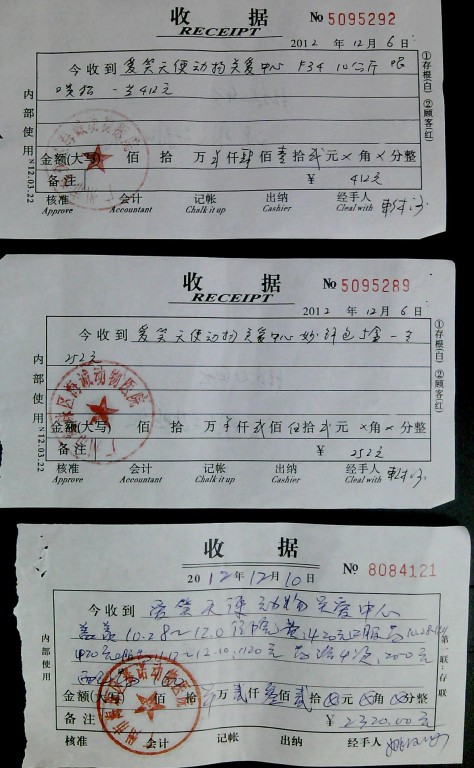 收 据
RECEIPT
No 5095292
2012 年 12 月 6 日
今收到 爱笑天使动物关爱中心 F34 10公斤
一关412元
金额(大写) 佰 拾 万 仟 肆 佰 壹 拾 贰 元 × 角 × 分整
备注 ¥ 412元
核准 会计 记帐 出纳 经手人
Approve Accountant Chalk it up Cashier Cleal with
内部使用
N12.03.22
①存根(白) ②顾客(红)
收 据
RECEIPT
No 5095289
2012 年 12 月 6 日
今收到 爱笑天使动物关爱中心 妙鲜包 5盒 一关
252元
金额(大写) 佰 拾 万 仟 贰 佰 伍 拾 贰 元 × 角 × 分整
备注 ¥ 252元
核准 会计 记帐 出纳 经手人
Approve Accountant Chalk it up Cashier Cleal with
内部使用
N12.03.22
①存根(白) ②顾客(红)
海诚动物医院
收 据
No 8084121
2012 年 12 月 10 日
今收到 爱笑天使动物关爱中心
10.28~12.0 住院费 1420元
11.17~12-10, 1120元 200元
金额(大写) 佰 拾 万 贰 仟 叁 佰 贰 拾 元 角 分整
备注 ¥ 2320.00元
核准 会计 记帐 出纳 经手人
内部使用
第一联:存联